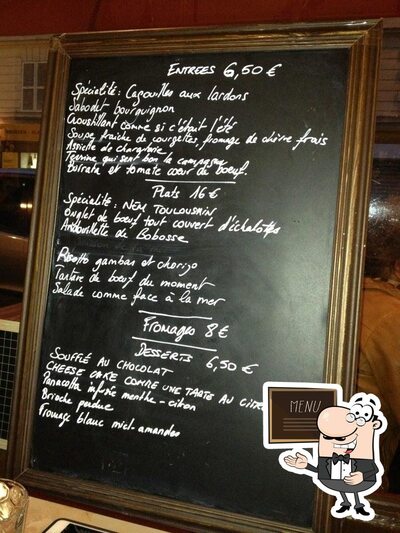 ENTREES 6,50 €
Spécialité: Cagouilles aux lardons
Sabodet bourguignon
Croustillant comme si c'était l'été
Soupe fraîche de courgettes, fromage de chèvre frais
Assiette de charcuterie
Terrine qui sent bon la campagne
Burrata et tomate coeur de boeuf.
Plats 16 €
Spécialité: NEM TOULOUSAIN
Onglet de boeuf tout couvert d'échalotes
Andouillette de Bobosse
Risotto gambas et chorizo
Tartare de boeuf du moment
Salade comme face à la mer
FROMAGES 8 €
DESSERTS 6,50 €
SOUFFLÉ AU CHOCOLAT
CHEESE CAKE COMME UNE TARTE AU CITRON
Panacotta infusée menthe-citron
Brioche perdue
Fromage blanc miel-amandes
MENU